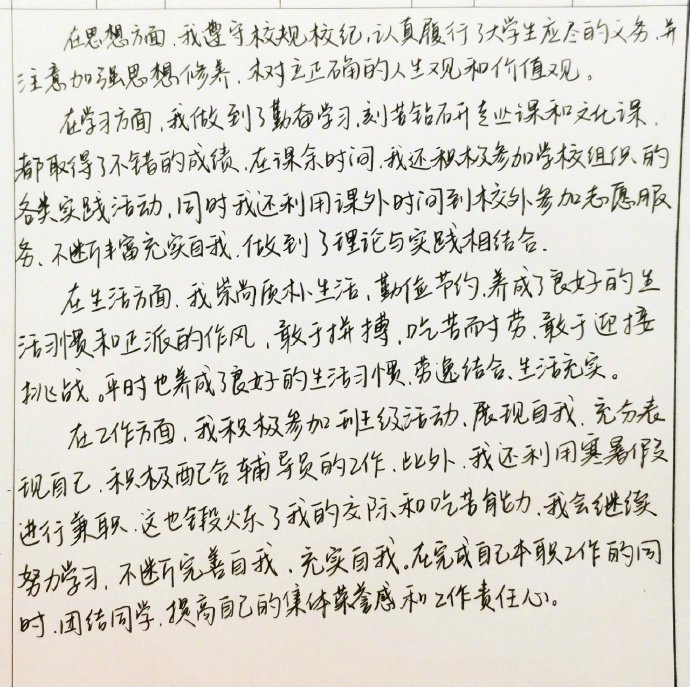 在思想方面,我遵守校规校纪,认真履行了大学生应尽的义务,并
注意加强思想修养,树立正确的人生观和价值观。
在学习方面,我做到了勤奋学习,刻苦钻研专业课和文化课,
都取得了不错的成绩,在课余时间,我还积极参加学校组织的
各类实践活动,同时我还利用课外时间到校外参加志愿服
务、不断丰富充实自我,做到了理论与实践相结合.
在生活方面,我崇尚质朴生活,勤俭节约,养成了良好的生
活习惯和正派的作风,敢于拼搏,吃苦耐劳,敢于迎接
挑战。平时也养成了良好的生活习惯,劳逸结合、生活充实。
在工作方面,我积极参加班级活动,展现自我,充分表
现自己,积极配合辅导员的工作,此外,我还利用寒暑假
进行兼职,这也锻炼了我的交际和吃苦能力,我会继续
努力学习,不断完善自我,充实自我。在完成自己本职工作的同
时,团结同学,提高自己的集体荣誉感和工作责任心。